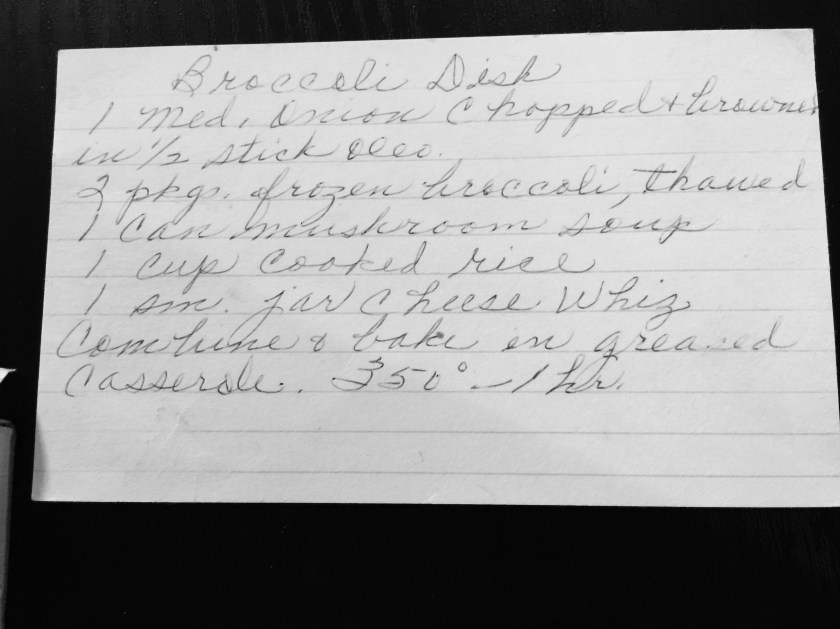 Broccoli Dish
1 Med. Onion Chopped & browned
in 1/2 stick oleo.
2 pkgs. frozen broccoli, thawed
1 can mushroom soup
1 cup cooked rice
1 sm. jar Cheese Whiz
Combine & bake in greased
Casserole. 350° - 1 hr.